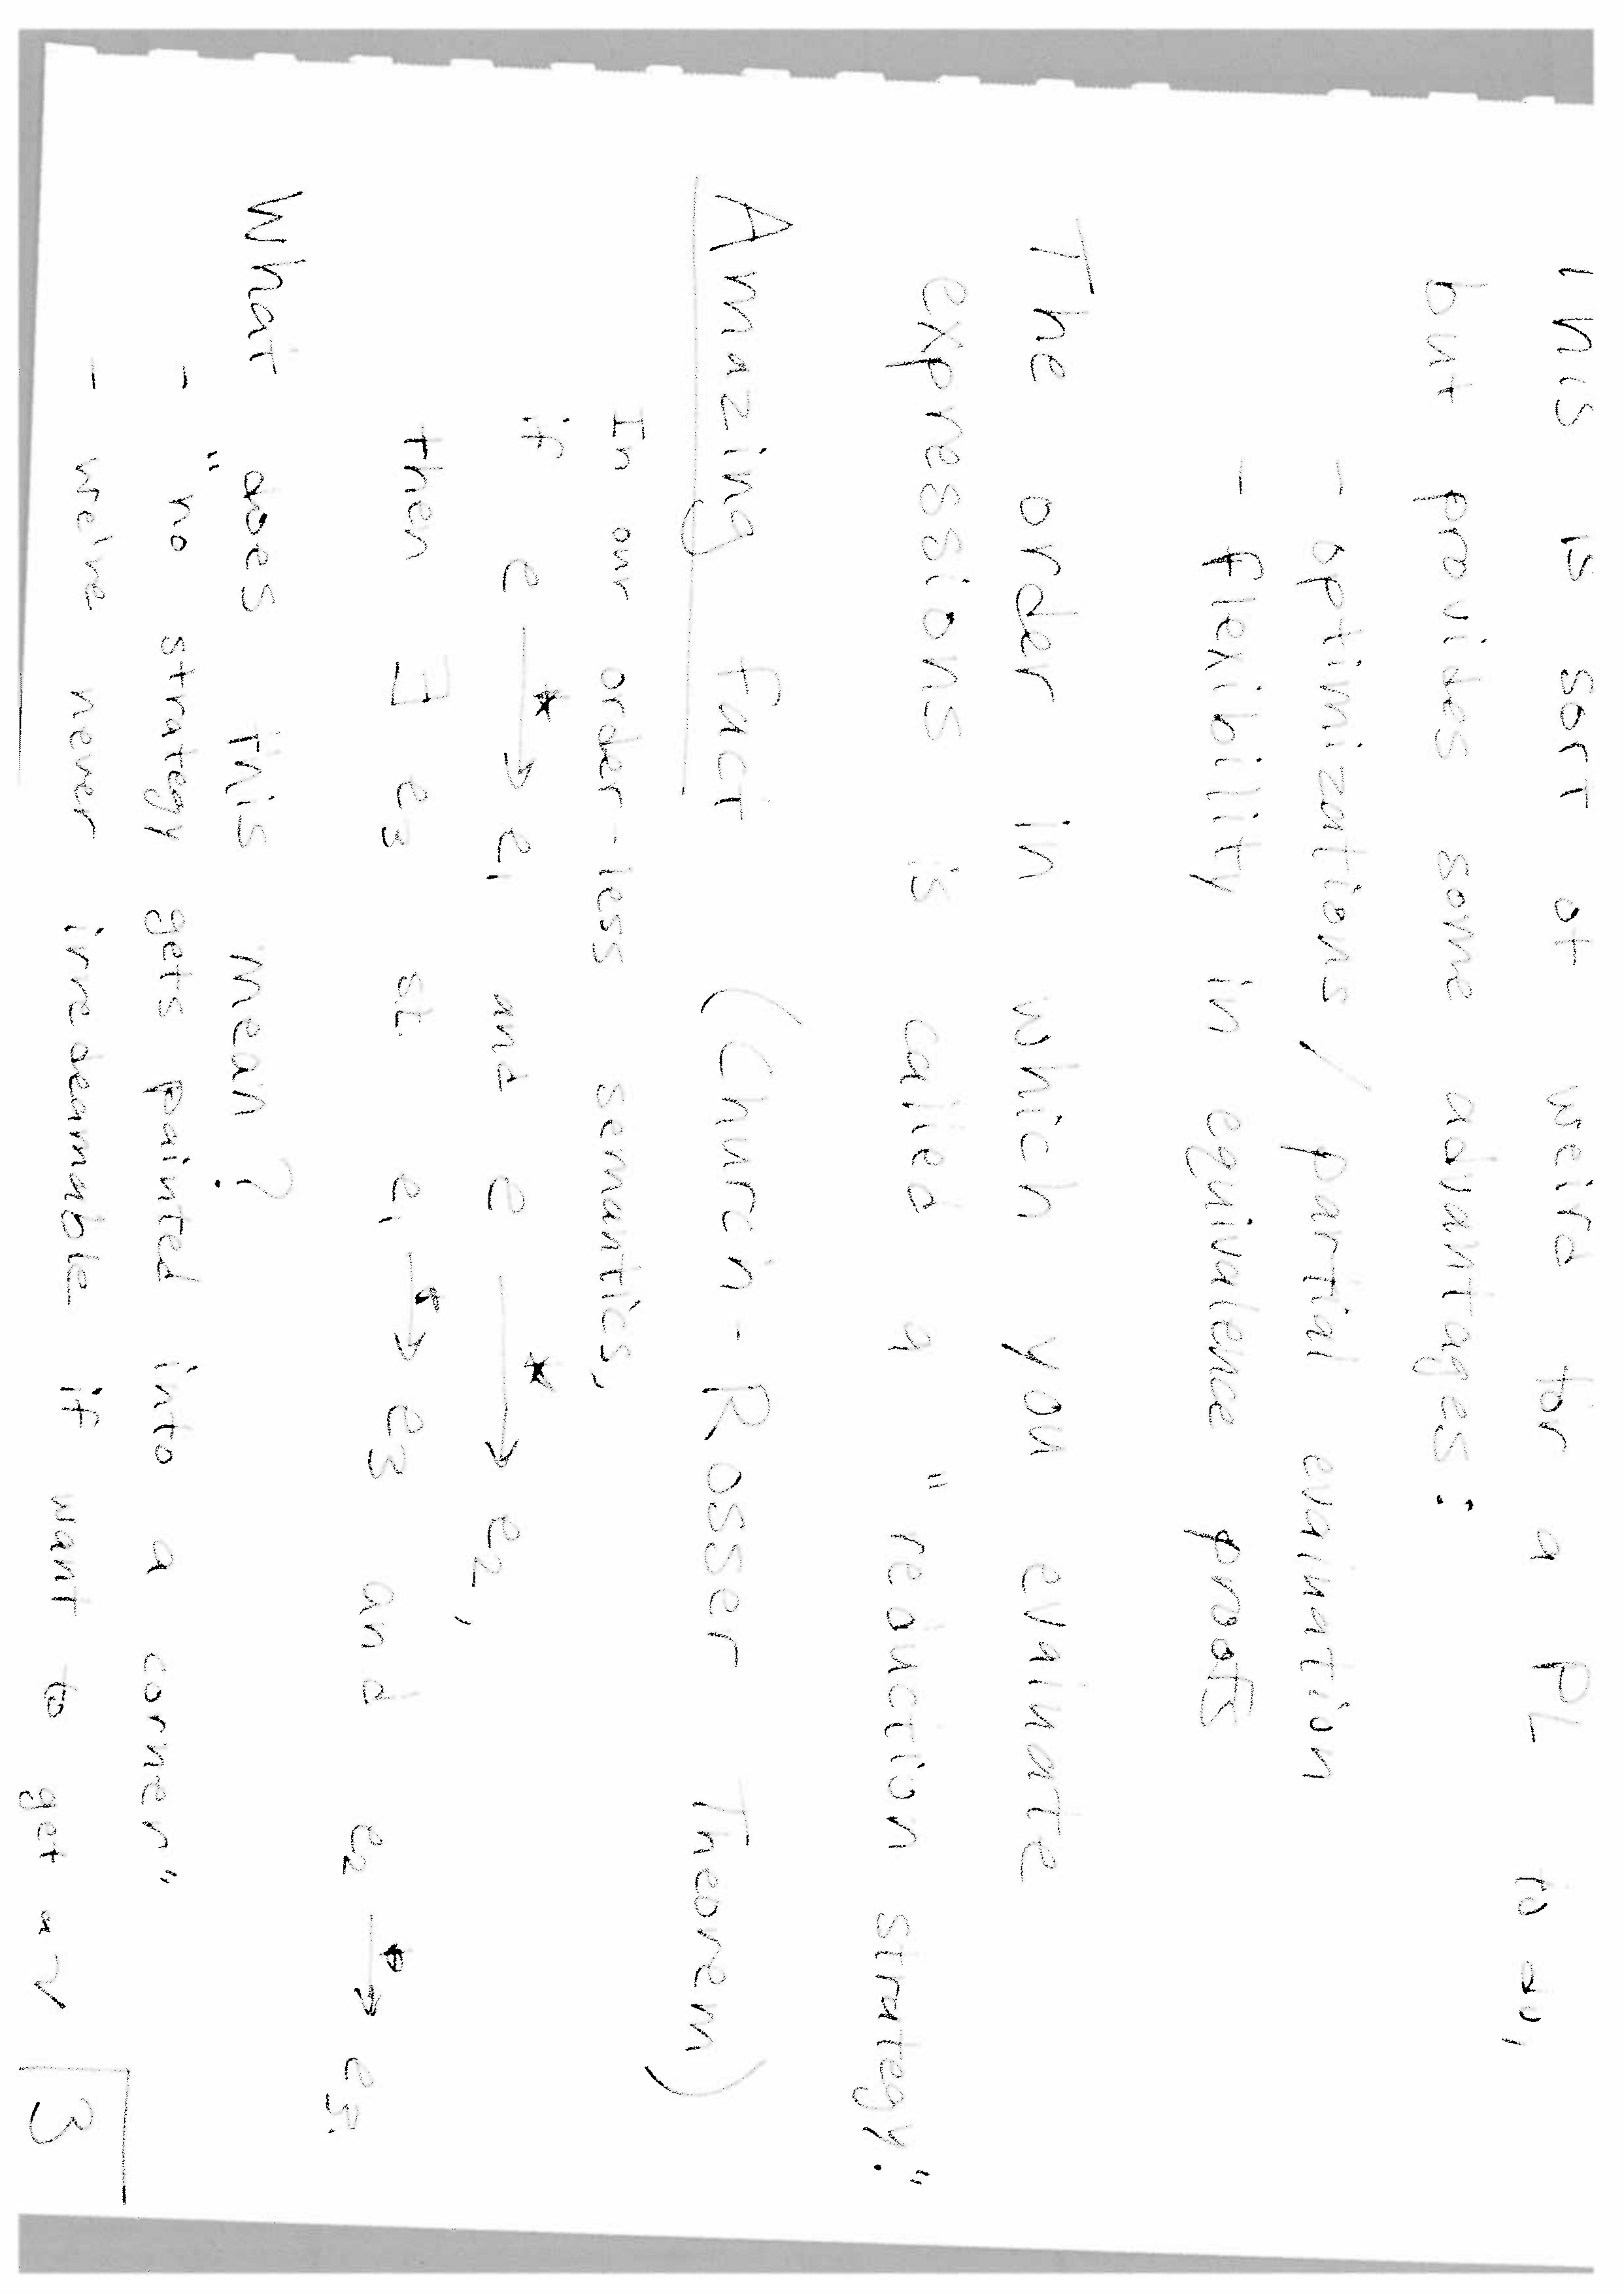 This is sort of weird for a PL to do,
but provides some advantages:
- optimizations / partial evaluation
- flexibility in equivalence proofs
The order in which you evaluate
expressions is called a "reduction strategy."
Amazing Fact (Church-Rosser Theorem)
In our order-less semantics,
if e →* e₁ and e →* e₂,
then ∃ e₃ st. e₁ →* e₃ and e₂ →* e₃.
What does this mean?
- "no strategy gets painted into a corner"
- we're never irredeemable if want to get a v
3